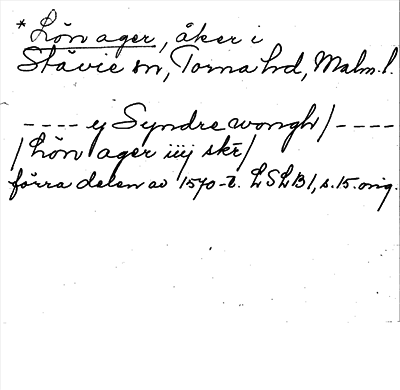 * Lön ager, åker i
Stävie sn, Torna hd, Malm. l.
---- ej Syndre wongh/----
/Lön ager iiij skr/
förra delen av 1570-t. LSLB1, s.15. orig.